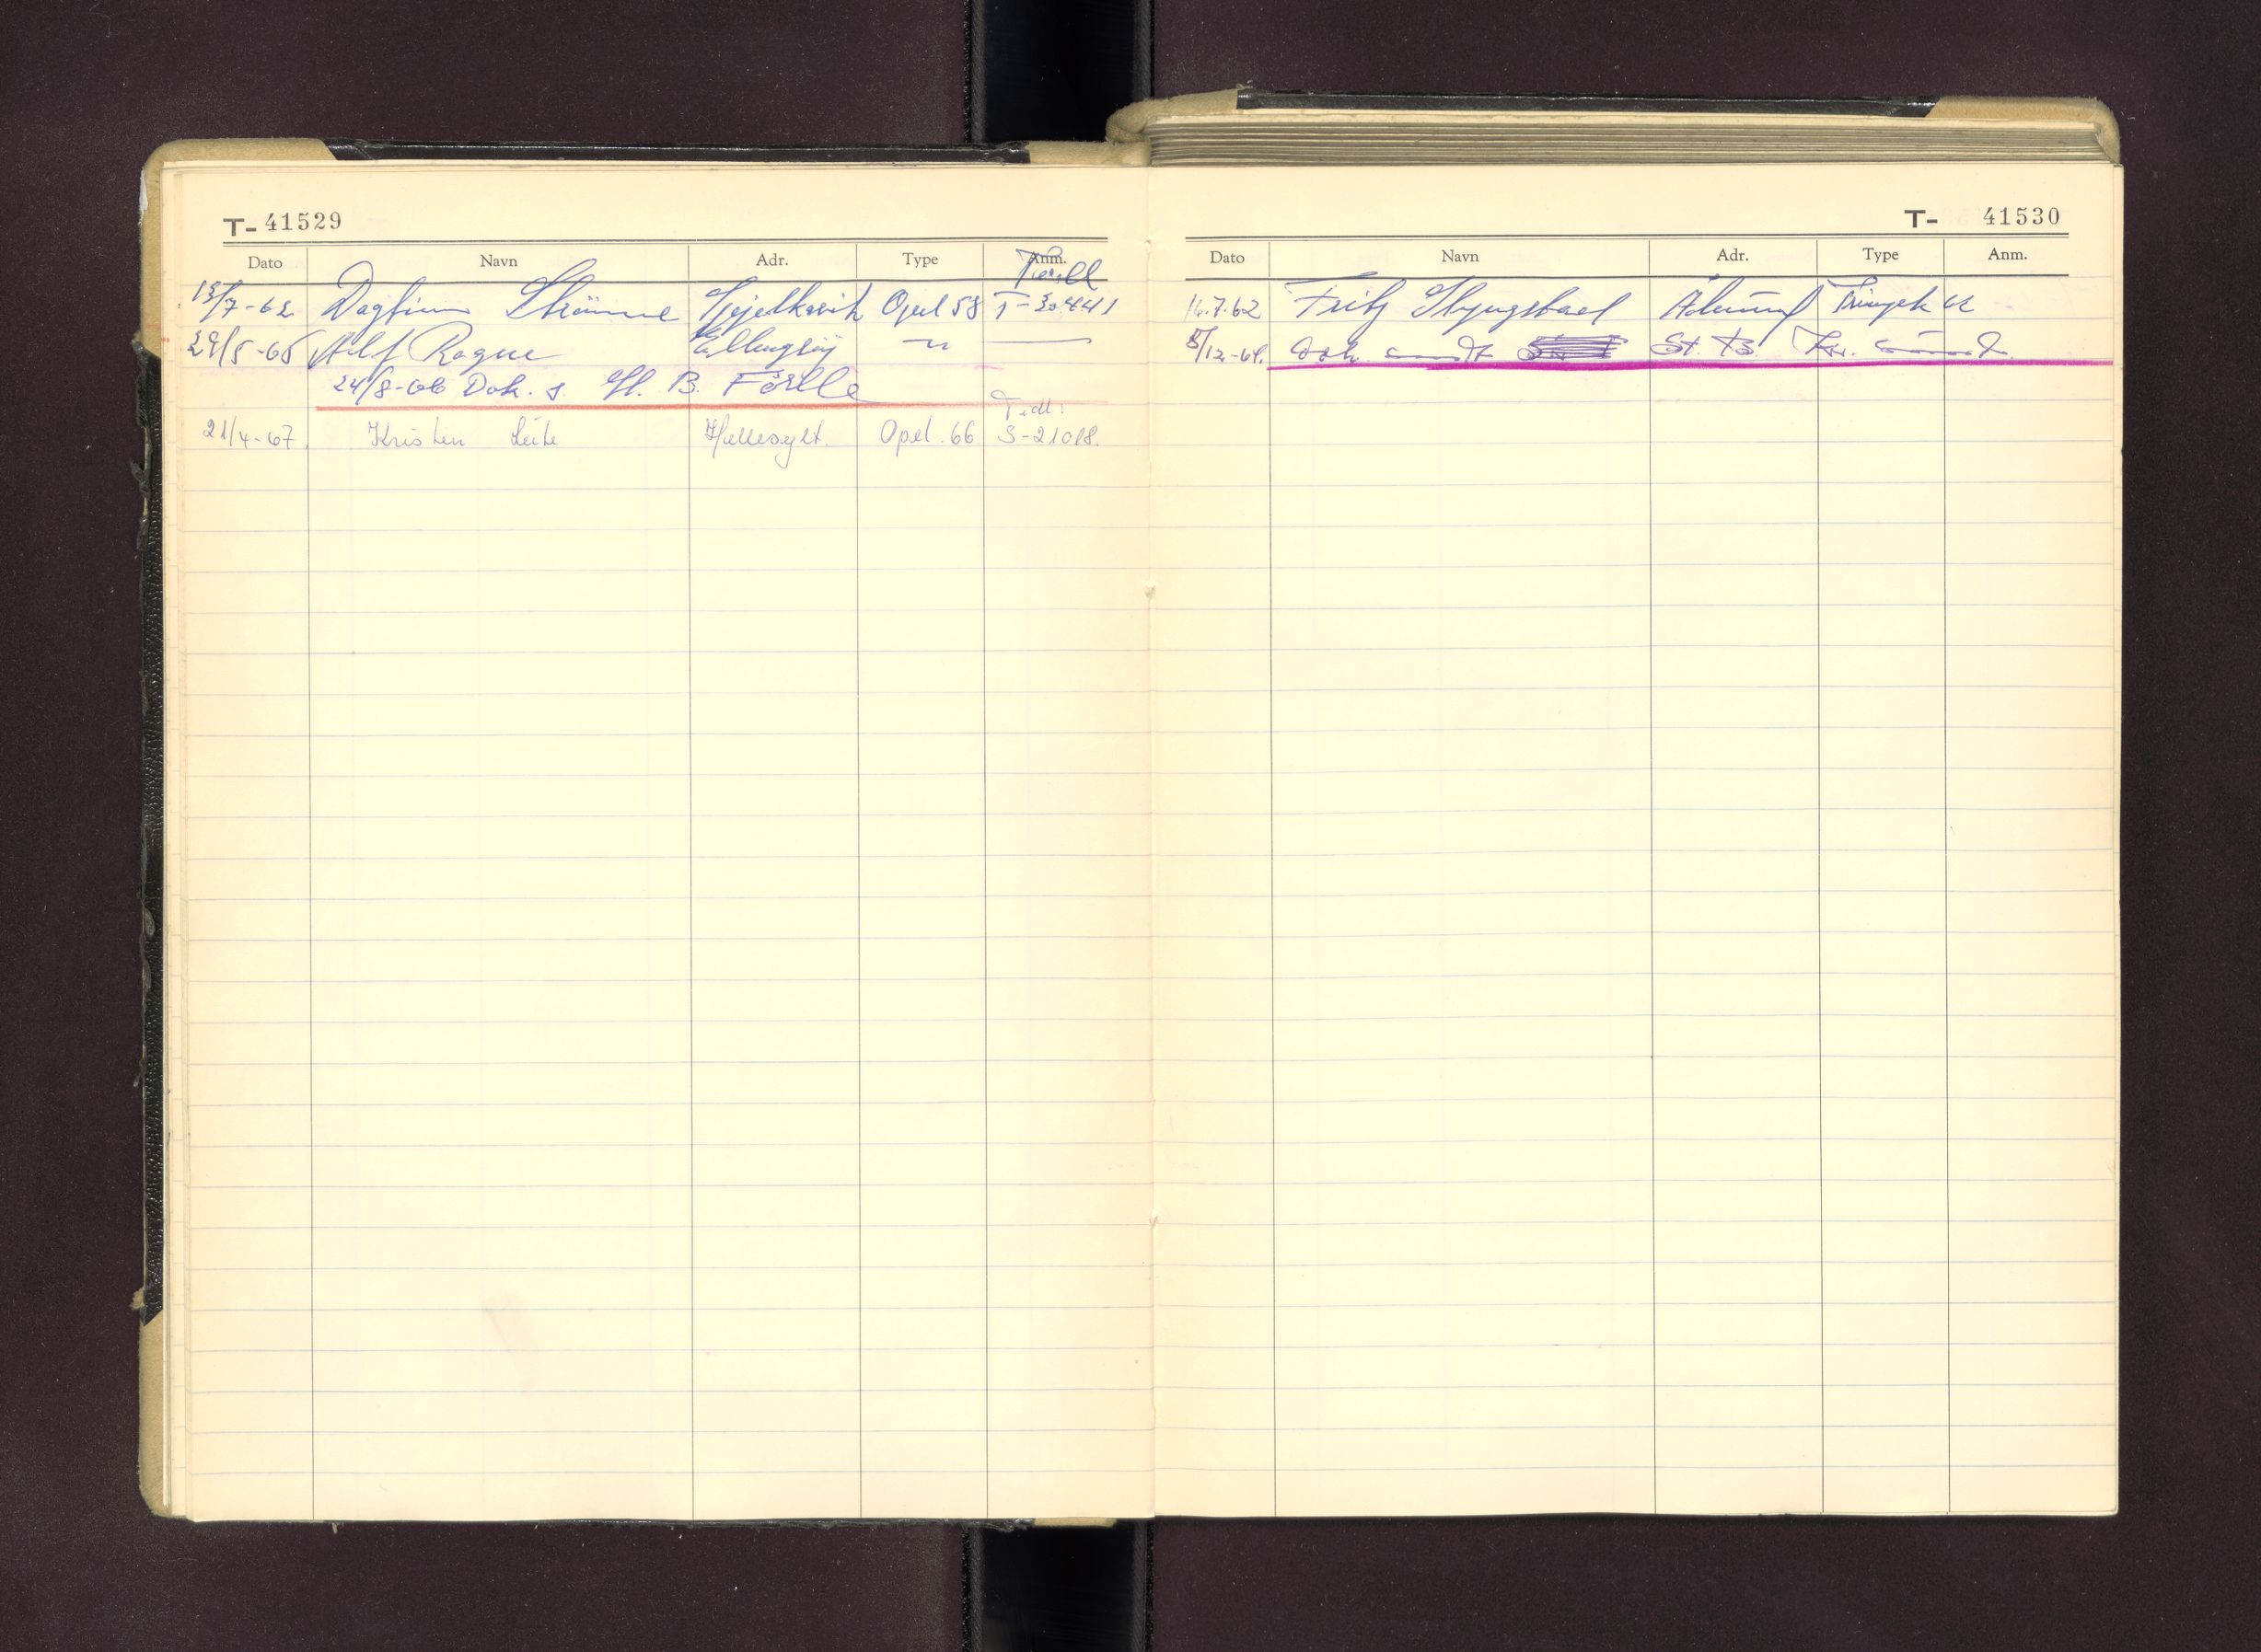 T- 41529
Dato Navn Adr. Type Anm.
Tidl
13/7-62 Dagfinn Strømme Spjelkavik Opel 58 T-30441
29/5-65 Alf Rogne Ellingsøy —"—
24/8-66 Dok. s. St. B. Förlle
Tidl:
21/4-67. Kristen Hellesylt. Opel. 66 S-21018.
T- 41530
Dato Navn Adr. Type Anm.
16.7.62 Fritz Slyngstad Ålesund 62
5/12-64. Dok. sendt St. B. Kr. sund